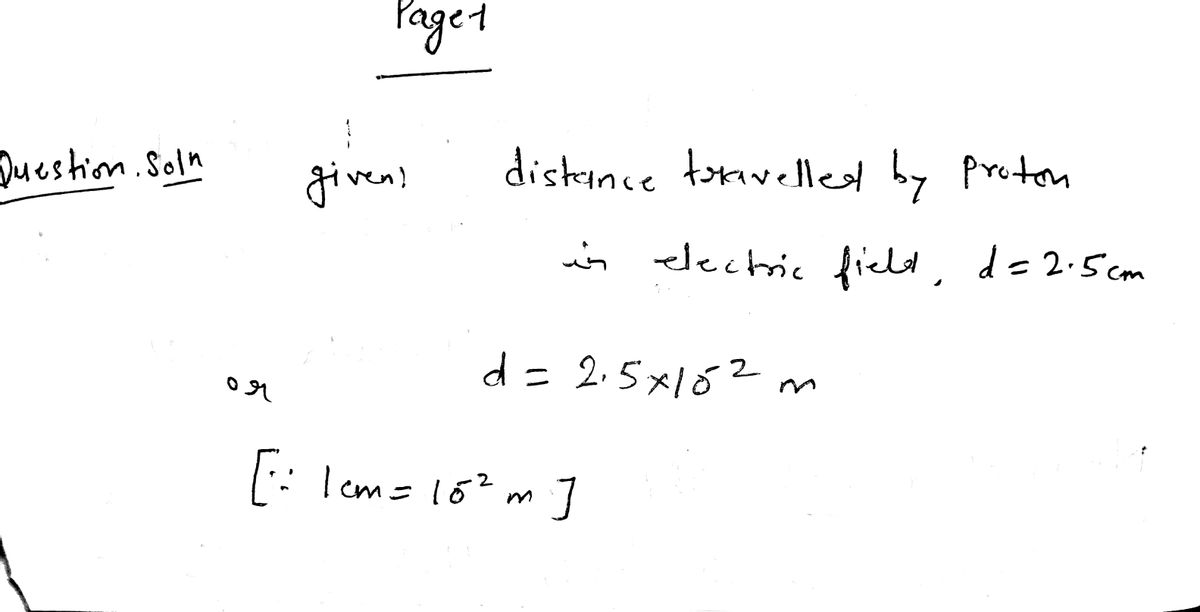 Page 1
Question. Soln given: distance travelled by proton
in electric field, d = 2.5 cm
or d = 2.5 × 10⁻² m
[∵ 1 cm = 10⁻² m]